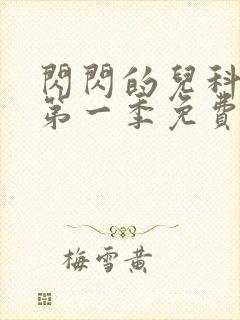 閃閃的兒科
第一季免費
梅雪黄